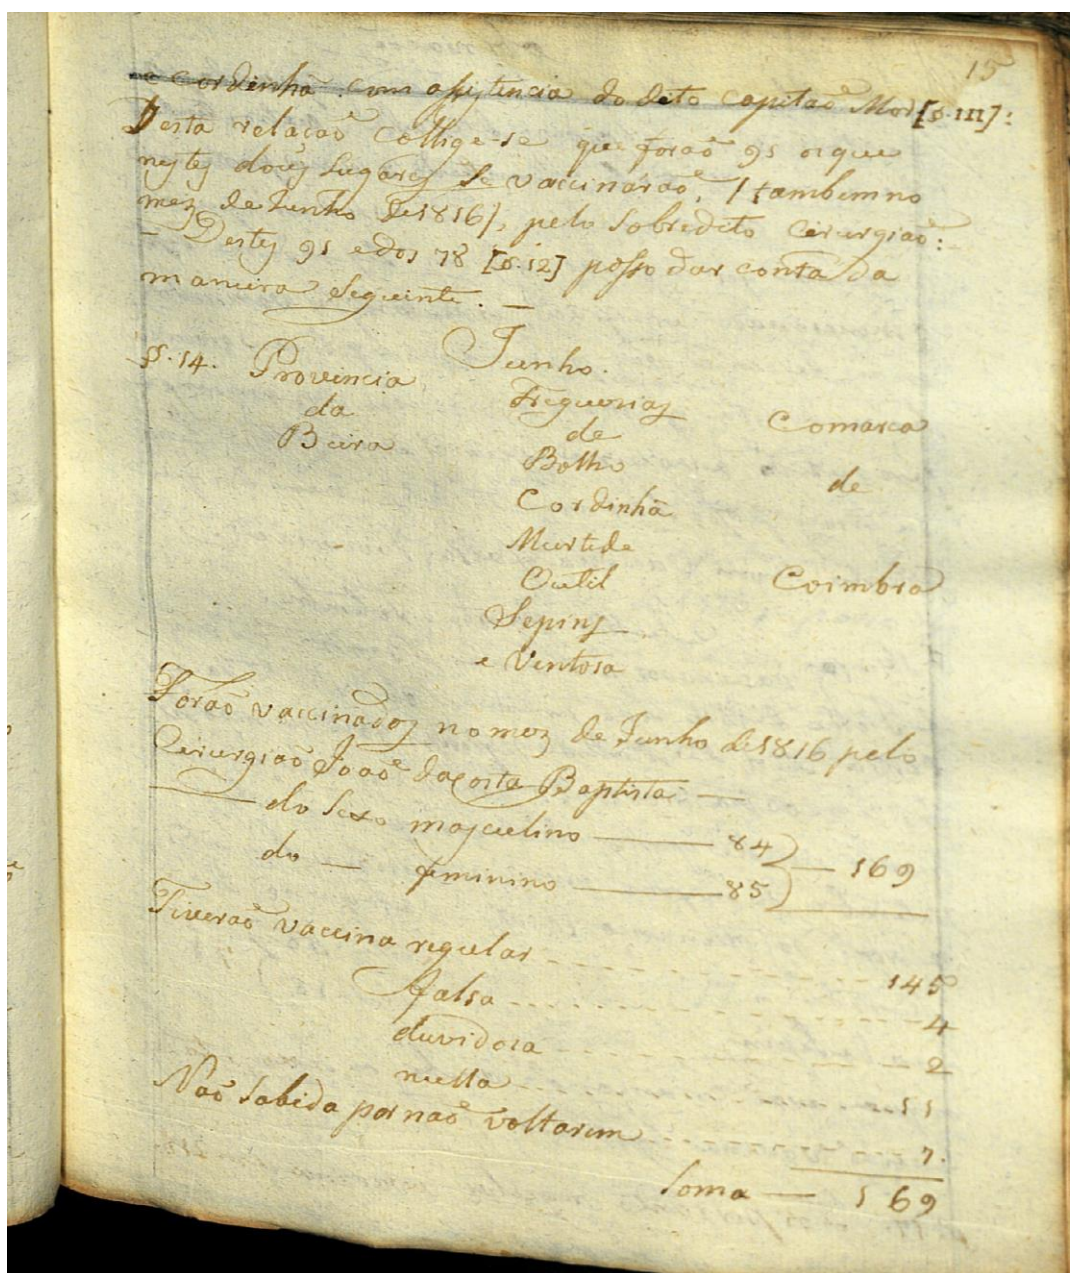 15
e Cordinhã com assistencia do dito Capitaõ Mor [§. III]:
Desta relaçaõ collige-se que foraõ 91 os que
nestes dous lugares se vaccinaraõ, /tambem no
mez de Junho de 1816/, pelo sobredito Cirurgiaõ:
– Destes 91 e dos 78 [§. 12] posso dar conta da
maneira seguinte. –
§. 14. Provincia Junho.
da Freguesias Comarca
Beira de
Bolho de
Cordinhã
Murtede
Outil Coimbra
Sepins
e Ventosa
Foraõ vaccinados no mez de Junho de 1816 pelo
Cirurgiaõ Joaõ da Costa Baptista: —
— do sexo masculino — 84
do — feminino — 85 — 169
Tiveraõ vaccina regular - - - 145
falsa - - - 4
duvidosa - - - 2
nulla - - - 11
Naõ sabida por naõ voltarem - - - 7.
Soma — 169